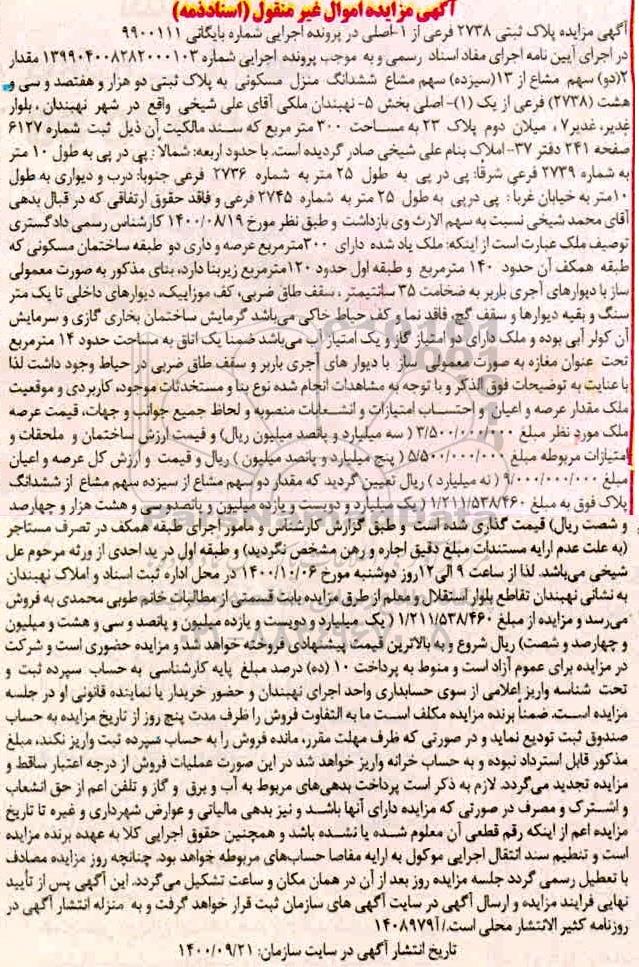 آگهی مزایده اموال غیر منقول (اسنادذمه)
آگهی مزایده پلاک ثبتی ۲۷۳۸ فرعی از ۱-اصلی در پرونده اجرایی شماره بایگانی ۹۹۰۰۱۱۱
در اجرای آیین نامه اجرای مفاد اسناد رسمی و به موجب پرونده اجرایی شماره ۱۳۹۹۰۴۰۰۸۲۸۲۰۰۰۱۰۳ مقدار
۲(دو) سهم مشاع از ۱۳(سیزده) سهم مشاع ششدانگ منزل مسکونی به پلاک ثبتی دو هزار و هفتصد و سی و
هشت (۲۷۳۸) فرعی از یک (۱)- اصلی بخش ۵- نهبندان ملکی آقای علی شیخی واقع در شهر نهبندان ، بلوار
غدیر، غدیر۷ ، میلان دوم پلاک ۲۳ به مساحت ۳۰۰ متر مربع که سند مالکیت آن ذیل ثبت شماره ۶۱۲۷
صفحه ۲۴۱ دفتر ۳۷- املاک بنام علی شیخی صادر گردیده است. با حدود اربعه: شمالاً : پی در پی به طول ۱۰ متر
به شماره ۲۷۳۹ فرعی شرقاً: پی در پی به طول ۲۵ متر به شماره ۲۷۳۶ فرعی جنوباً: درب و دیواری به طول
۱۰متر به خیابان غرباً : پی درپی به طول ۲۵ متر به شماره ۲۷۴۵ فرعی و فاقد حقوق ارتفاقی که در قبال بدهی
آقای محمد شیخی نسبت به سهم الارث وی بازداشت و طبق نظر مورخ ۱۴۰۰/۰۸/۱۹ کارشناس رسمی دادگستری
توصیف ملک عبارت است از اینکه: ملک یاد شده دارای ۳۰۰مترمربع عرصه و داری دو طبقه ساختمان مسکونی که
طبقه همکف آن حدود ۱۴۰ مترمربع و طبقه اول حدود ۱۲۰مترمربع زیربنا دارد، بنای مذکور به صورت معمولی
ساز با دیوارهای آجری باربر به ضخامت ۳۵ سانتیمتر ، سقف طاق ضربی، کف موزاییک، دیوارهای داخلی تا یک متر
سنگ و بقیه دیوارها و سقف گچ، فاقد نما و کف حیاط خاکی می‌باشد گرمایش ساختمان بخاری گازی و سرمایش
آن کولر آبی بوده و ملک دارای دو امتیاز گاز و یک امتیاز آب می‌باشد ضمناً یک اتاق به مساحت حدود ۱۴ مترمربع
تحت عنوان مغازه به صورت معمولی ساز با دیوار های آجری باربر و سقف طاق ضربی در حیاط وجود داشت لذا
با عنایت به توضیحات فوق الذکر و با توجه به مشاهدات انجام شده نوع بنا و مستحدثات موجود، کاربردی و موقعیت
ملک مقدار عرصه و اعیان و احتساب امتیازات و انشعابات منصوبه و لحاظ جمیع جوانب و جهات، قیمت عرصه
ملک مورد نظر مبلغ ۳/۵۰۰/۰۰۰/۰۰۰ ( سه میلیارد و پانصد میلیون ریال) و قیمت ارزش ساختمان و ملحقات و
امتیازات مربوطه مبلغ ۵/۵۰۰/۰۰۰/۰۰۰ ( پنج میلیارد و پانصد میلیون ) ریال و قیمت و ارزش کل عرصه و اعیان
مبلغ ۹/۰۰۰/۰۰۰/۰۰۰ ( نه میلیارد ) ریال تعیین گردید که مقدار دو سهم مشاع از سیزده سهم مشاع از ششدانگ
پلاک فوق به مبلغ ۱/۲۱۱/۵۳۸/۴۶۰ ( یک میلیارد و دویست و یازده میلیون و پانصدو سی و هشت هزار و چهارصد
و شصت ریال) قیمت گذاری شده است و طبق گزارش کارشناس و مامور اجرای طبقه همکف در تصرف مستاجر
(به علت عدم ارایه مستندات مبلغ دقیق اجاره و رهن مشخص نگردید) و طبقه اول در ید احدی از ورثه مرحوم عل
شیخی می‌باشد. لذا از ساعت ۹ الی۱۲روز دوشنبه مورخ ۱۴۰۰/۱۰/۰۶ در محل اداره ثبت اسناد و املاک نهبندان
به نشانی نهبندان تقاطع بلوار استقلال و معلم از طرق مزایده بابت قسمتی از مطالبات خانم طوبی محمدی به فروش
می‌رسد و مزایده از مبلغ ۱/۲۱۱/۵۳۸/۴۶۰ ( یک میلیارد و دویست و یازده میلیون و پانصد و سی و هشت و میلیون
و چهارصد و شصت) ریال شروع و به بالاترین قیمت پیشنهادی فروخته خواهد شد و مزایده حضوری است و شرکت
در مزایده برای عموم آزاد است و منوط به پرداخت ۱۰ (ده) درصد مبلغ پایه کارشناسی به حساب سپرده ثبت و
تحت شناسه واریز اعلامی از سوی حسابداری واحد اجرای نهبندان و حضور خریدار یا نماینده قانونی او در جلسه
مزایده است. ضمناً برنده مزایده مکلف است ما به التفاوت فروش را ظرف مدت پنج روز از تاریخ مزایده به حساب
صندوق ثبت تودیع نماید و در صورتی که ظرف مهلت مقرر، مانده فروش را به حساب سپرده ثبت واریز نکند، مبلغ
مذکور قابل استرداد نبوده و به حساب خرانه واریز خواهد شد در این صورت عملیات فروش از درجه اعتبار ساقط و
مزایده تجدید می‌گردد. لازم به ذکر است پرداخت بدهی‌های مربوط به آب و برق و گاز و تلفن اعم از حق انشعاب
و اشترک و مصرف در صورتی که مزایده دارای آنها باشد و نیز بدهی مالیاتی و عوارض شهرداری و غیره تا تاریخ
مزایده اعم از اینکه رقم قطعی آن معلوم شده یا نشده باشد و همچنین حقوق اجرایی کلا به عهده برنده مزایده
است و تنظیم سند انتقال اجرایی موکول به ارایه مفاصا حساب‌های مربوطه خواهد بود. چنانچه روز مزایده مصادف
با تعطیل رسمی گردد جلسه مزایده روز بعد از آن در همان مکان و ساعت تشکیل می‌گردد. این آگهی پس از تأیید
نهایی فرایند مزایده و ارسال آگهی در سایت آگهی های سازمان ثبت قرار خواهد گرفت و به منزله انتشار آگهی در
روزنامه کثیر الانتشار محلی است./آ۱۴۰۸۹۷۹
تاریخ انتشار آگهی در سایت سازمان: ۱۴۰۰/۰۹/۲۱